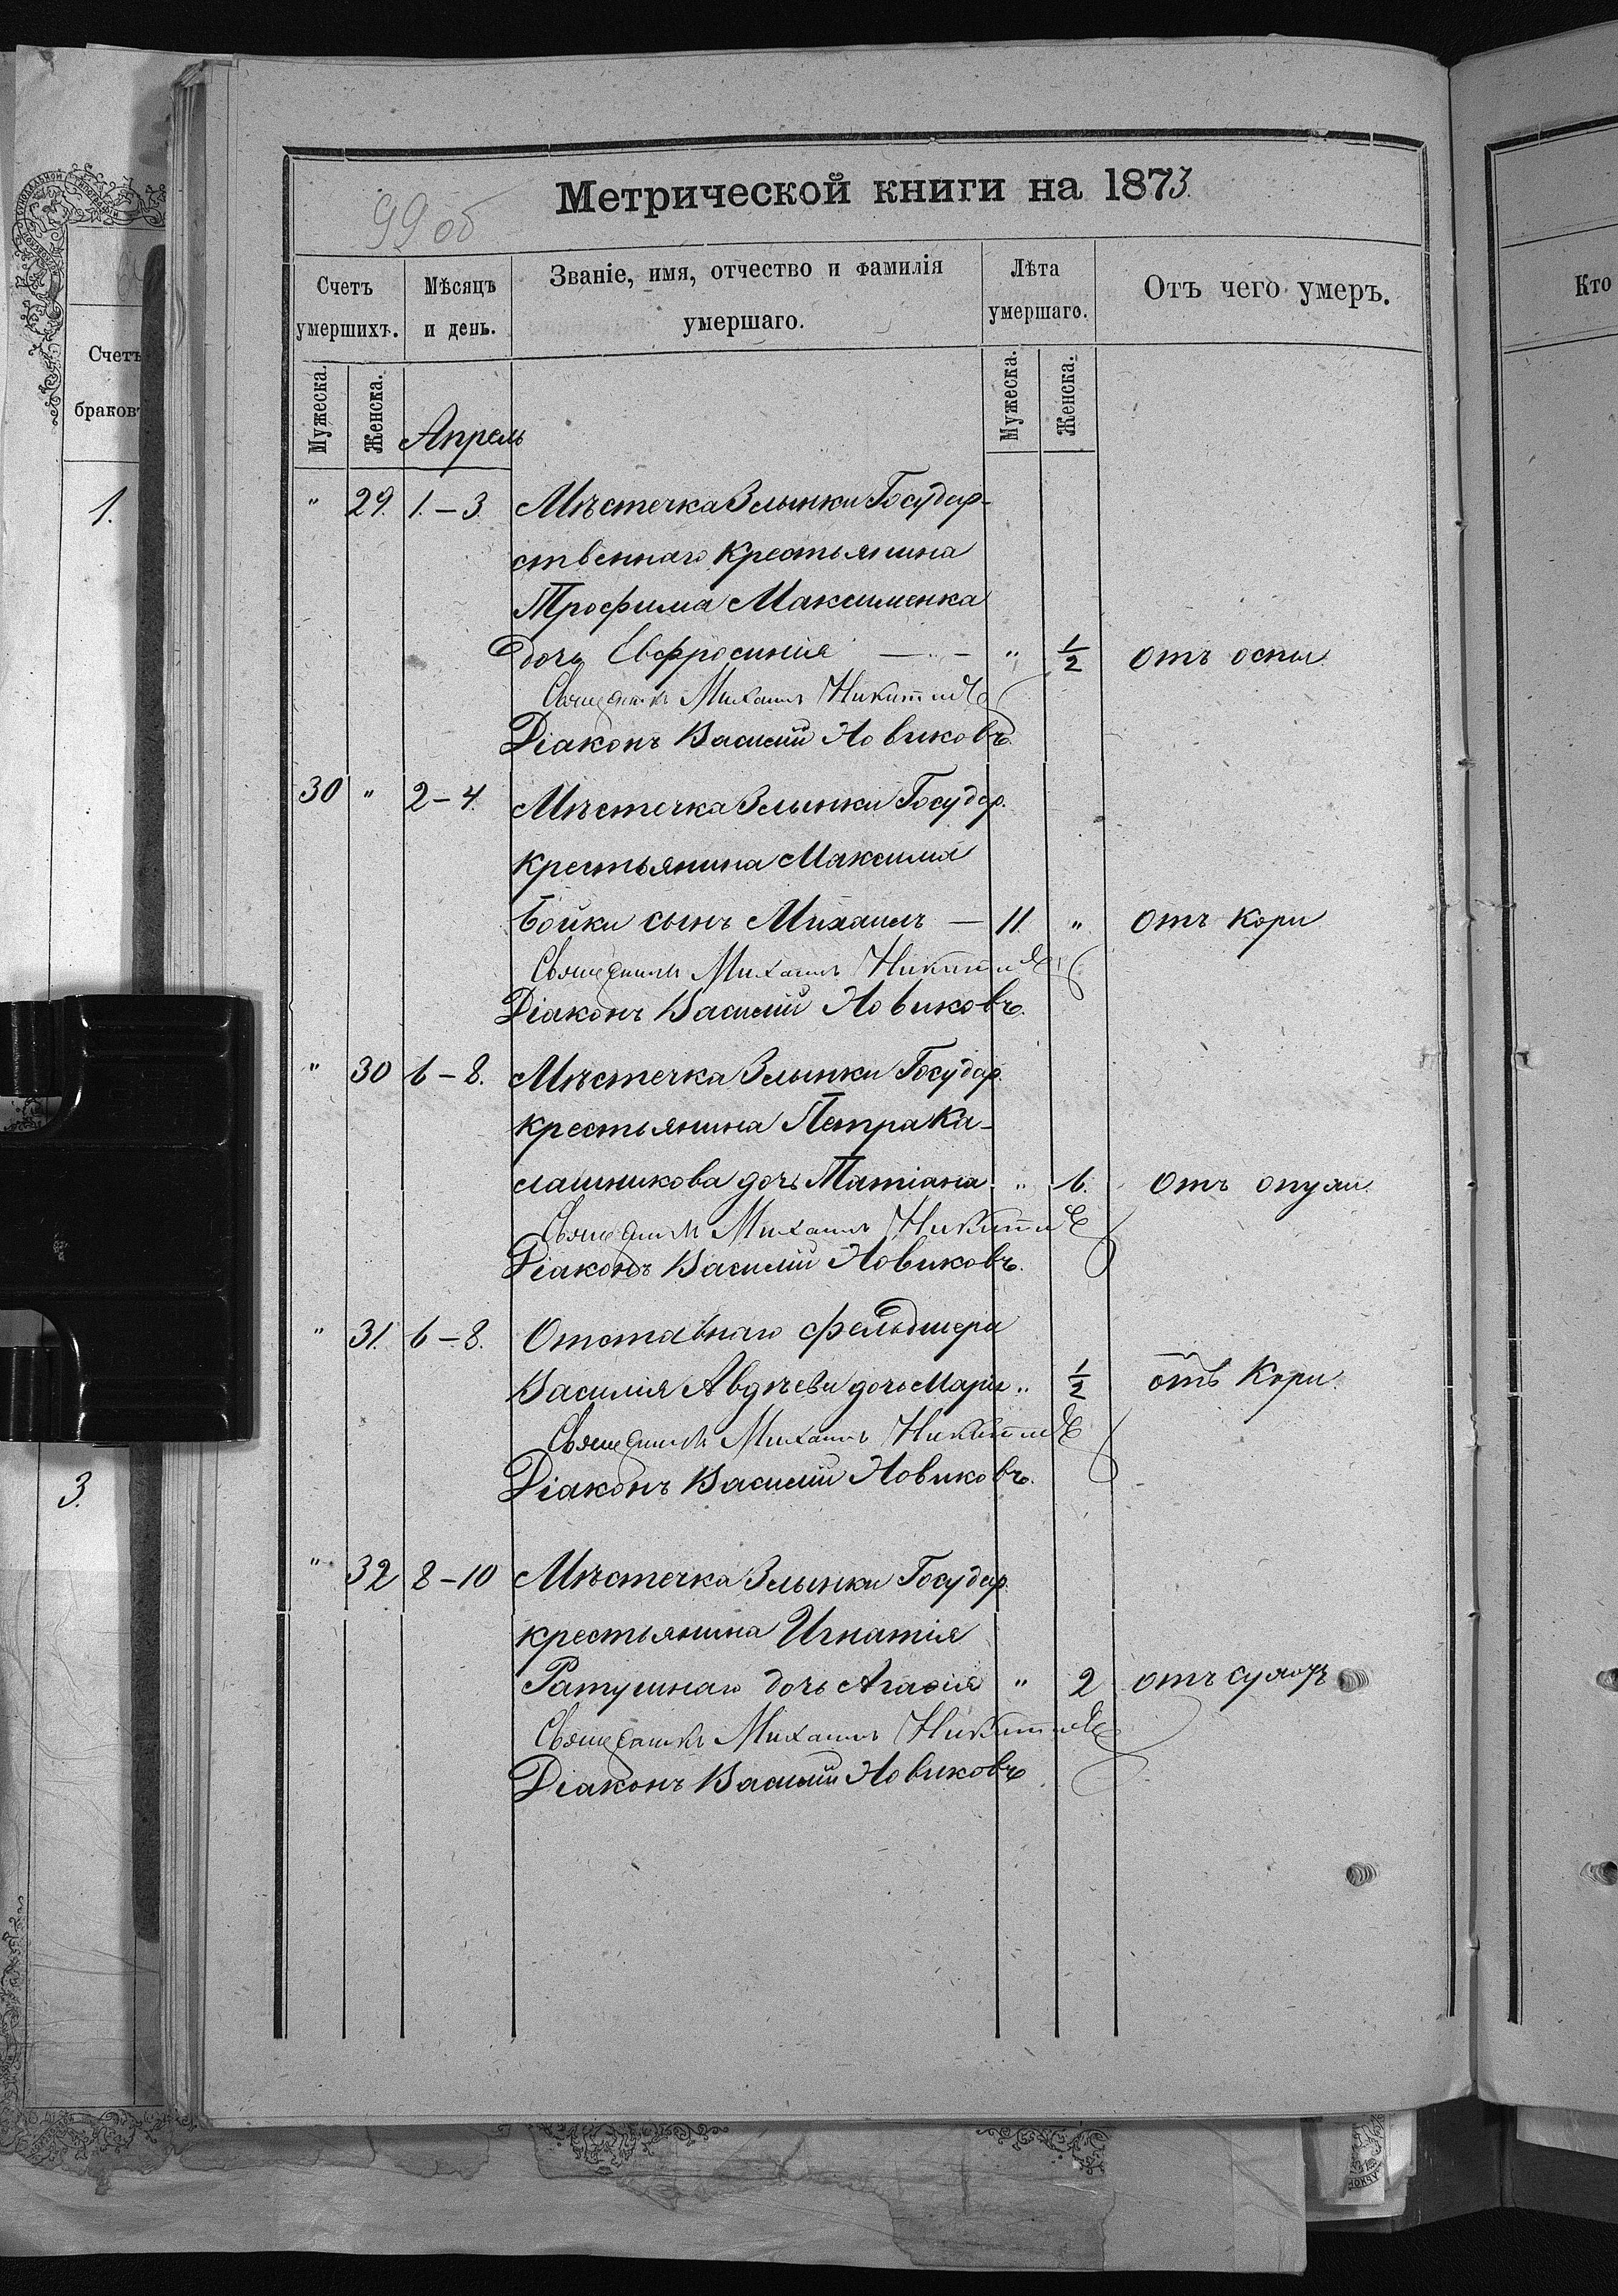 Метрической книги на 1873.
99 об
Счетъ умершихъ.
Мѣсяцъ и день.
Званіе, имя, отчество и фамилія умершаго.
Лѣта умершаго.
Отъ чего умеръ.
Мужеска.
Женска.
Апрель
Мужеска.
Женска.
" 29. 1.–3. Мѣстечка Злынки Государ-
ственнаго крестьянина
Трофима Максименка
дочь Евфросинія — " 1/2 отъ оспы.
Священникъ Михаилъ Никитинъ
Діаконъ Василій Новиковъ.
30 " 2–4. Мѣстечка Злынки Государ.
крестьянина Максима
Бойки сынъ Михаилъ — 11. " отъ кори
Священникъ Михаилъ Никитинъ
Діаконъ Василій Новиковъ.
" 30 6–8. Мѣстечка Злынки Государ.
крестьянина Петра Ка-
лашникова дочь Татіана " 6. отъ
Священникъ Михаилъ Никитинъ
Діаконъ Василій Новиковъ.
" 31. 6–8. Отставнаго фельдшера
Василія Авдѣева дочь Марія " 1/2 отъ кори.
Священникъ Михаилъ Никитинъ
Діаконъ Василій Новиковъ.
" 32 8–10 Мѣстечка Злынки Государ.
крестьянина Игнатія
Ратушнаго дочь Агафія " 2 отъ
Священникъ Михаилъ Никитинъ
Діаконъ Василій Новиковъ
Счетъ
браковъ
1.
3.
Кто